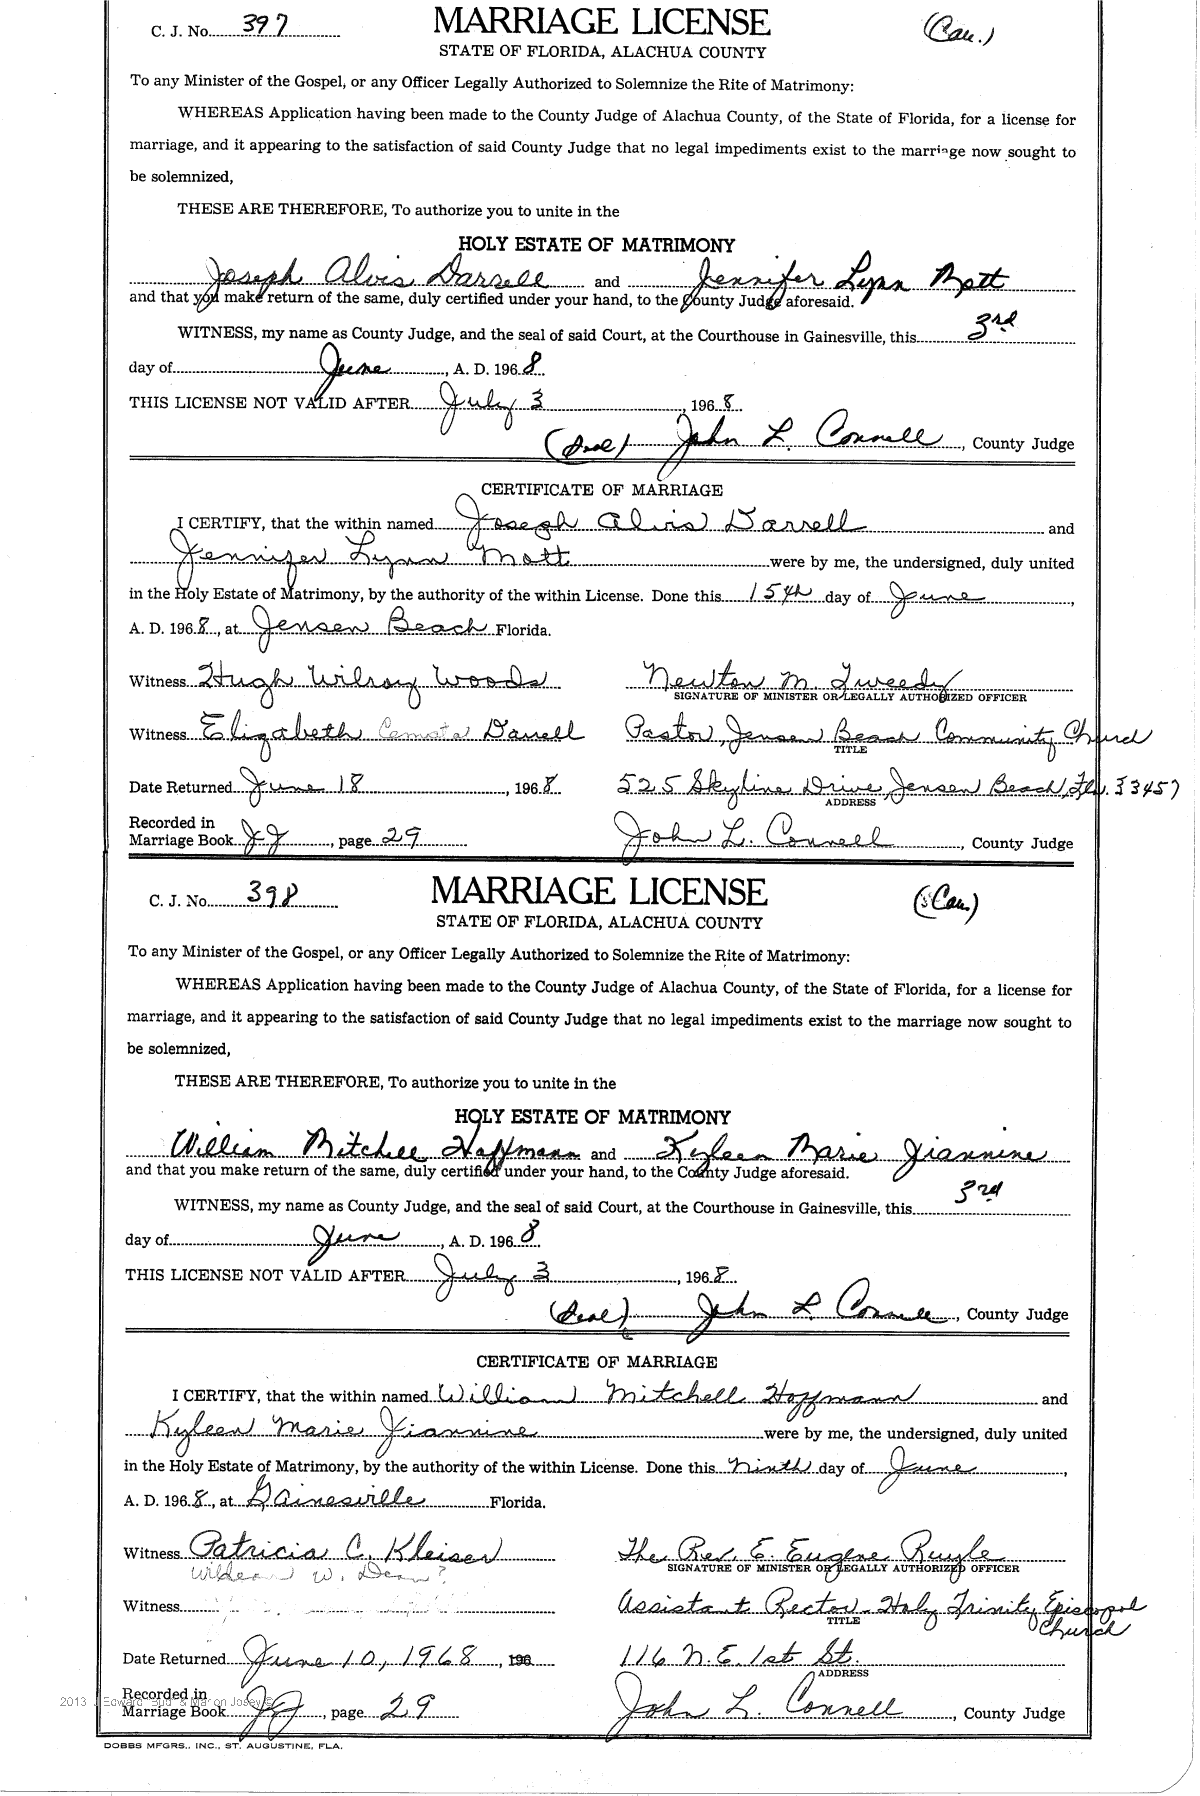 C. J. No. 397 MARRIAGE LICENSE (Cau.)
STATE OF FLORIDA, ALACHUA COUNTY
To any Minister of the Gospel, or any Officer Legally Authorized to Solemnize the Rite of Matrimony:
WHEREAS Application having been made to the County Judge of Alachua County, of the State of Florida, for a license for
marriage, and it appearing to the satisfaction of said County Judge that no legal impediments exist to the marriage now sought to
be solemnized,
THESE ARE THEREFORE, To authorize you to unite in the
HOLY ESTATE OF MATRIMONY
Joseph Alvis Darrell and Jennifer Lynn Mott
and that you make return of the same, duly certified under your hand, to the County Judge aforesaid.
WITNESS, my name as County Judge, and the seal of said Court, at the Courthouse in Gainesville, this 3rd
day of June, A. D. 1968.
THIS LICENSE NOT VALID AFTER July 3, 1968
(Seal) John L. Connell, County Judge
CERTIFICATE OF MARRIAGE
I CERTIFY, that the within named Joseph Alvis Darrell and
Jennifer Lynn Mott were by me, the undersigned, duly united
in the Holy Estate of Matrimony, by the authority of the within License. Done this 15th day of June,
A. D. 1968, at Jensen Beach Florida.
Witness Hugh Wilroy Woods Newton M. Tweedy
SIGNATURE OF MINISTER OR LEGALLY AUTHORIZED OFFICER
Witness Elizabeth Darrell Pastor, Jensen Beach Community Church
TITLE
Date Returned June 18, 1968 525 Skyline Drive, Jensen Beach, Fla. 33457
ADDRESS
Recorded in
Marriage Book JJ, page 29 John L. Connell, County Judge
C. J. No. 398 MARRIAGE LICENSE (Cau.)
STATE OF FLORIDA, ALACHUA COUNTY
To any Minister of the Gospel, or any Officer Legally Authorized to Solemnize the Rite of Matrimony:
WHEREAS Application having been made to the County Judge of Alachua County, of the State of Florida, for a license for
marriage, and it appearing to the satisfaction of said County Judge that no legal impediments exist to the marriage now sought to
be solemnized,
THESE ARE THEREFORE, To authorize you to unite in the
HOLY ESTATE OF MATRIMONY
William Mitchell Hoffmann and Kyleen Marie Jiannine
and that you make return of the same, duly certified under your hand, to the County Judge aforesaid.
WITNESS, my name as County Judge, and the seal of said Court, at the Courthouse in Gainesville, this 3rd
day of June, A. D. 1968
THIS LICENSE NOT VALID AFTER July 3, 1968
(Seal) John L. Connell, County Judge
CERTIFICATE OF MARRIAGE
I CERTIFY, that the within named William Mitchell Hoffmann and
Kyleen Marie Jiannine were by me, the undersigned, duly united
in the Holy Estate of Matrimony, by the authority of the within License. Done this Ninth day of June,
A. D. 1968, at Gainesville Florida.
Witness Patricia C. Kleiser The Rev. E. Eugene Ruyle
W. Dean? SIGNATURE OF MINISTER OR LEGALLY AUTHORIZED OFFICER
Witness Assistant Rector-Holy Trinity Episcopal
TITLE Church
Date Returned June 10, 1968, 196 116 N.E. 1st St.
ADDRESS
Recorded in
Marriage Book JJ, page 29 John L. Connell, County Judge
2013 J Edward "Bud" & Marion Josey ©
DOBBS MFGRS., INC., ST. AUGUSTINE, FLA.